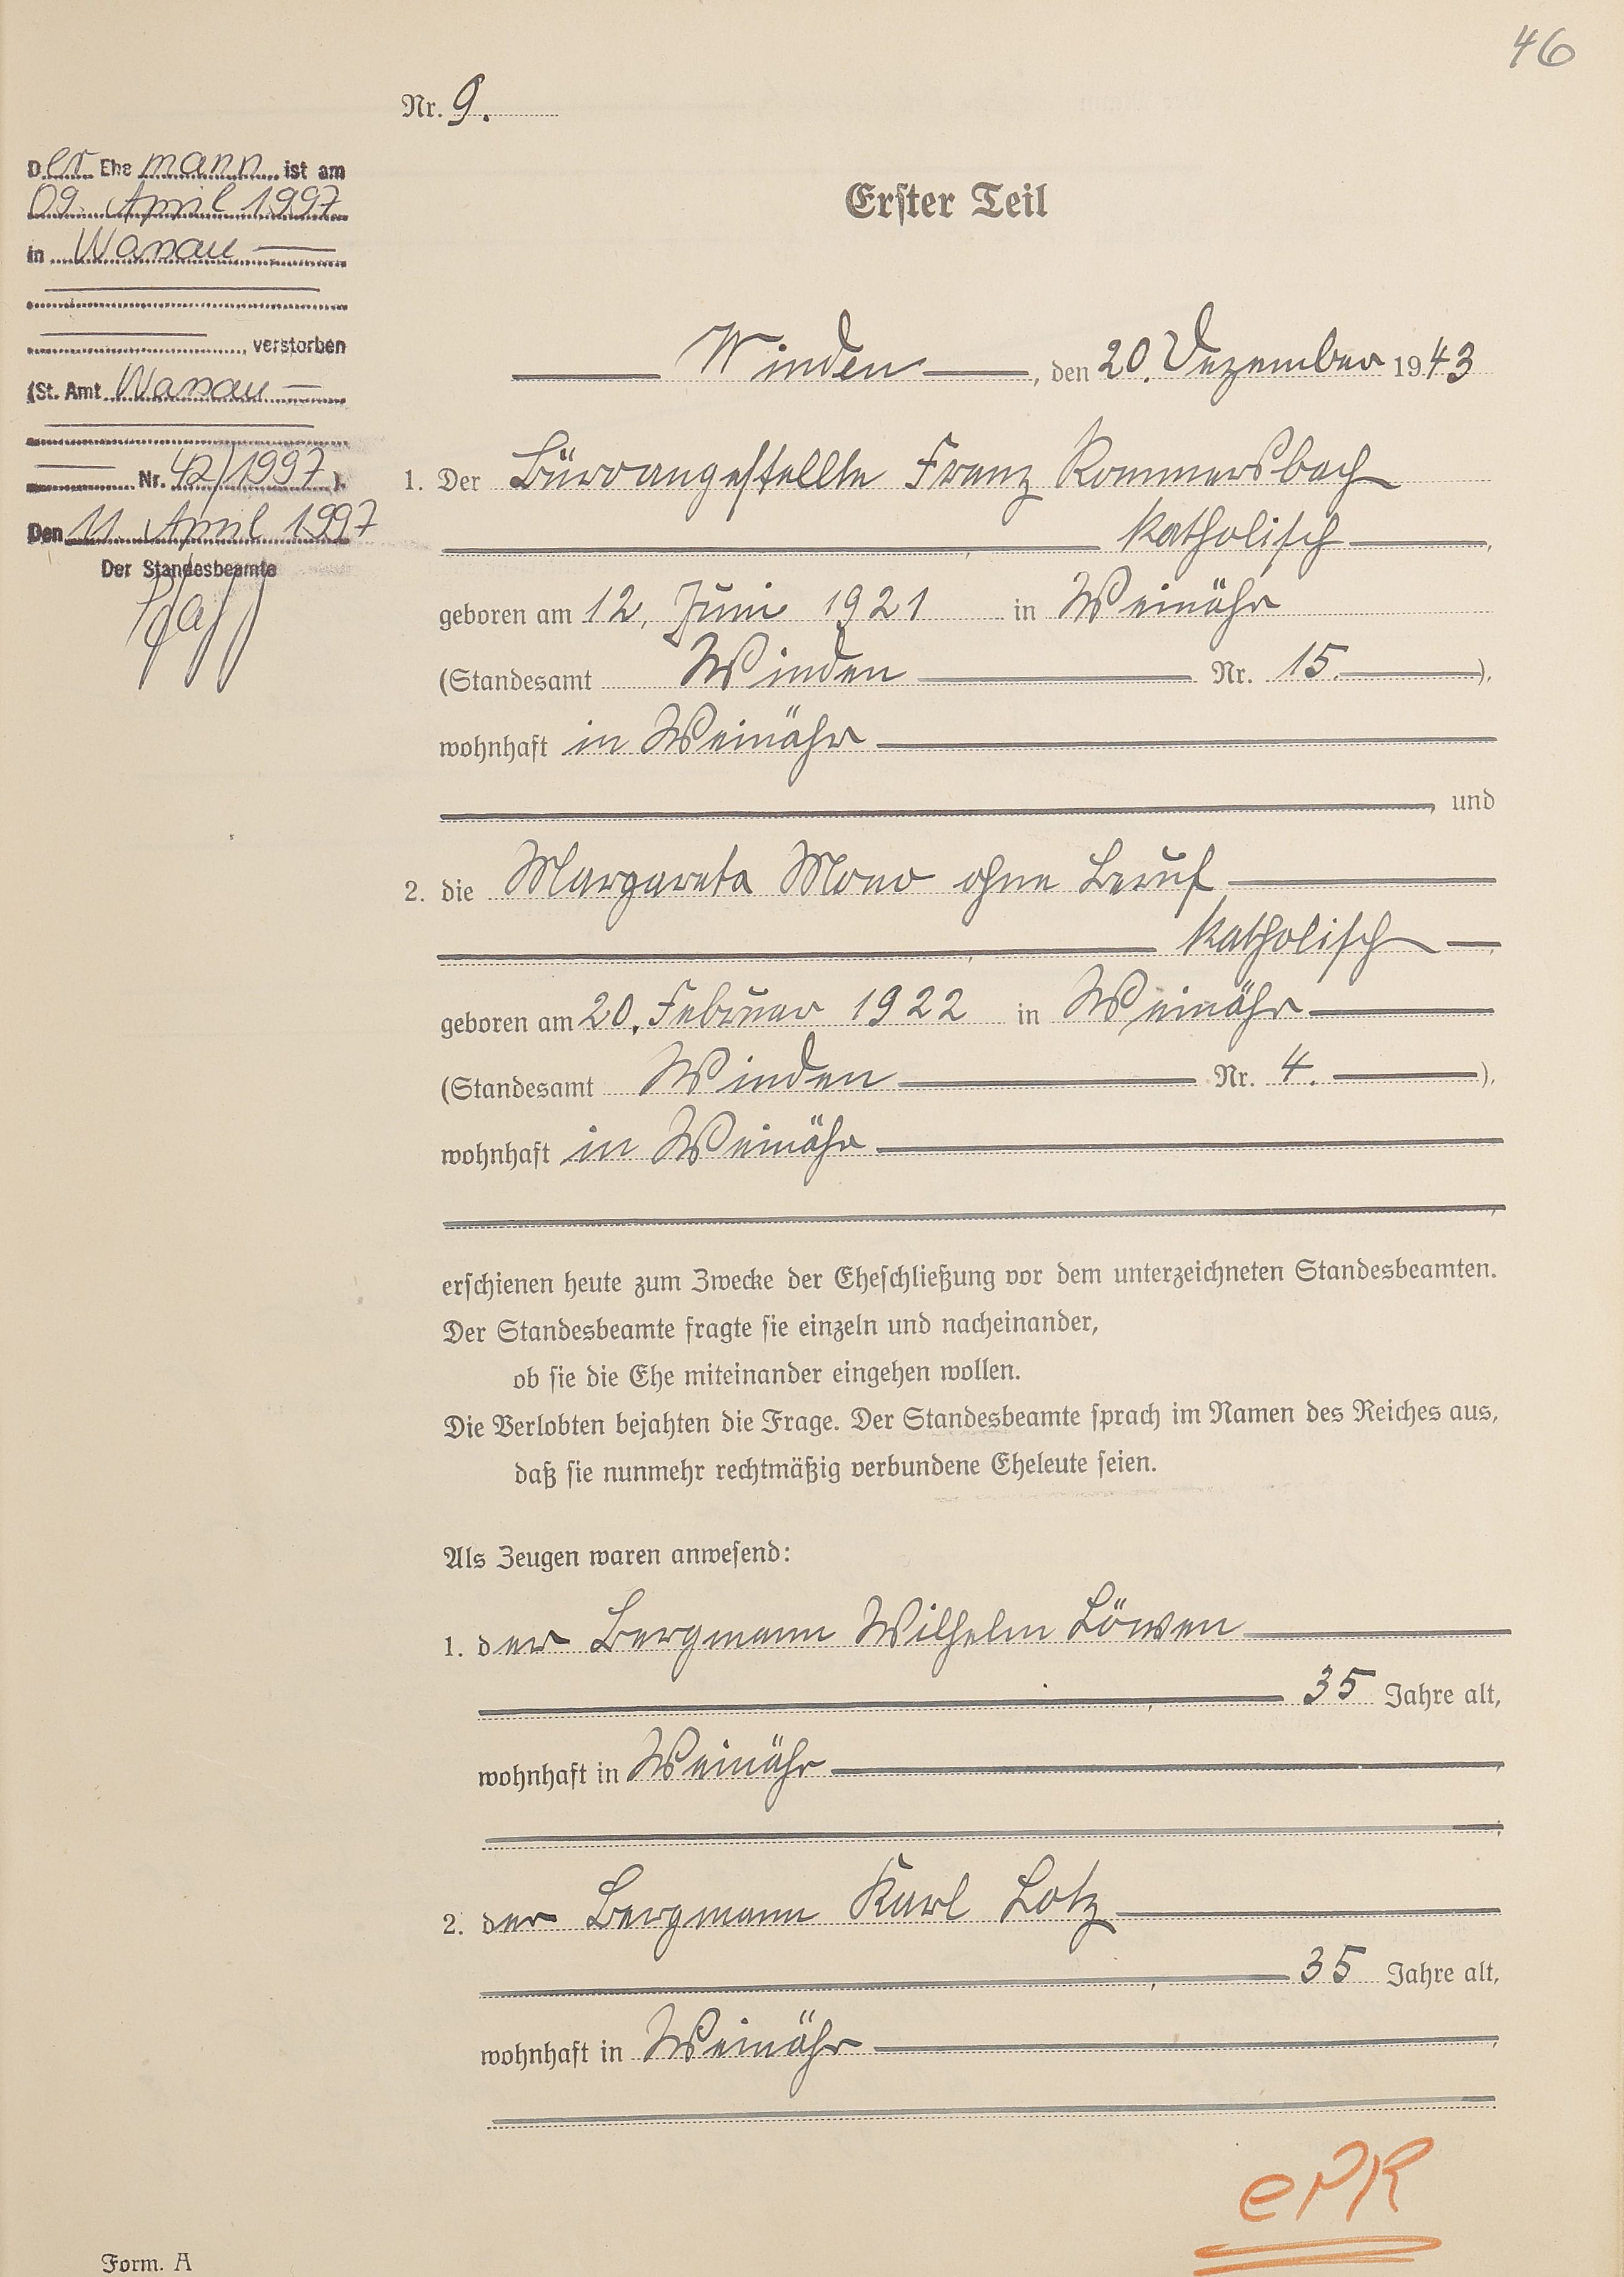 46
Nr. 9.
Der Ehe mann ist am
09. April 1997
in Nassau
verstorben
(St. Amt Nassau
Nr. 42/1997).
Den 11. April 1997
Der Standesbeamte
Erster Teil
Winden, den 20. Dezember 1943
1. Der Büroangestellte Franz Rommersbach
katholisch,
geboren am 12. Juni 1921 in Weinähr
(Standesamt Winden Nr. 15.),
wohnhaft in Weinähr
, und
2. die Margareta Mono ohne Beruf
katholisch,
geboren am 20. Februar 1922 in Weinähr
(Standesamt Winden Nr. 4.),
wohnhaft in Weinähr
erschienen heute zum Zwecke der Eheschließung vor dem unterzeichneten Standesbeamten.
Der Standesbeamte fragte sie einzeln und nacheinander,
ob sie die Ehe miteinander eingehen wollen.
Die Verlobten bejahten die Frage. Der Standesbeamte sprach im Namen des Reiches aus,
daß sie nunmehr rechtmäßig verbundene Eheleute seien.
Als Zeugen waren anwesend:
1. der Bergmann Wilhelm Löwen
, 35 Jahre alt,
wohnhaft in Weinähr
2. der Bergmann Karl Lotz
, 35 Jahre alt,
wohnhaft in Weinähr
ePR
Form. A